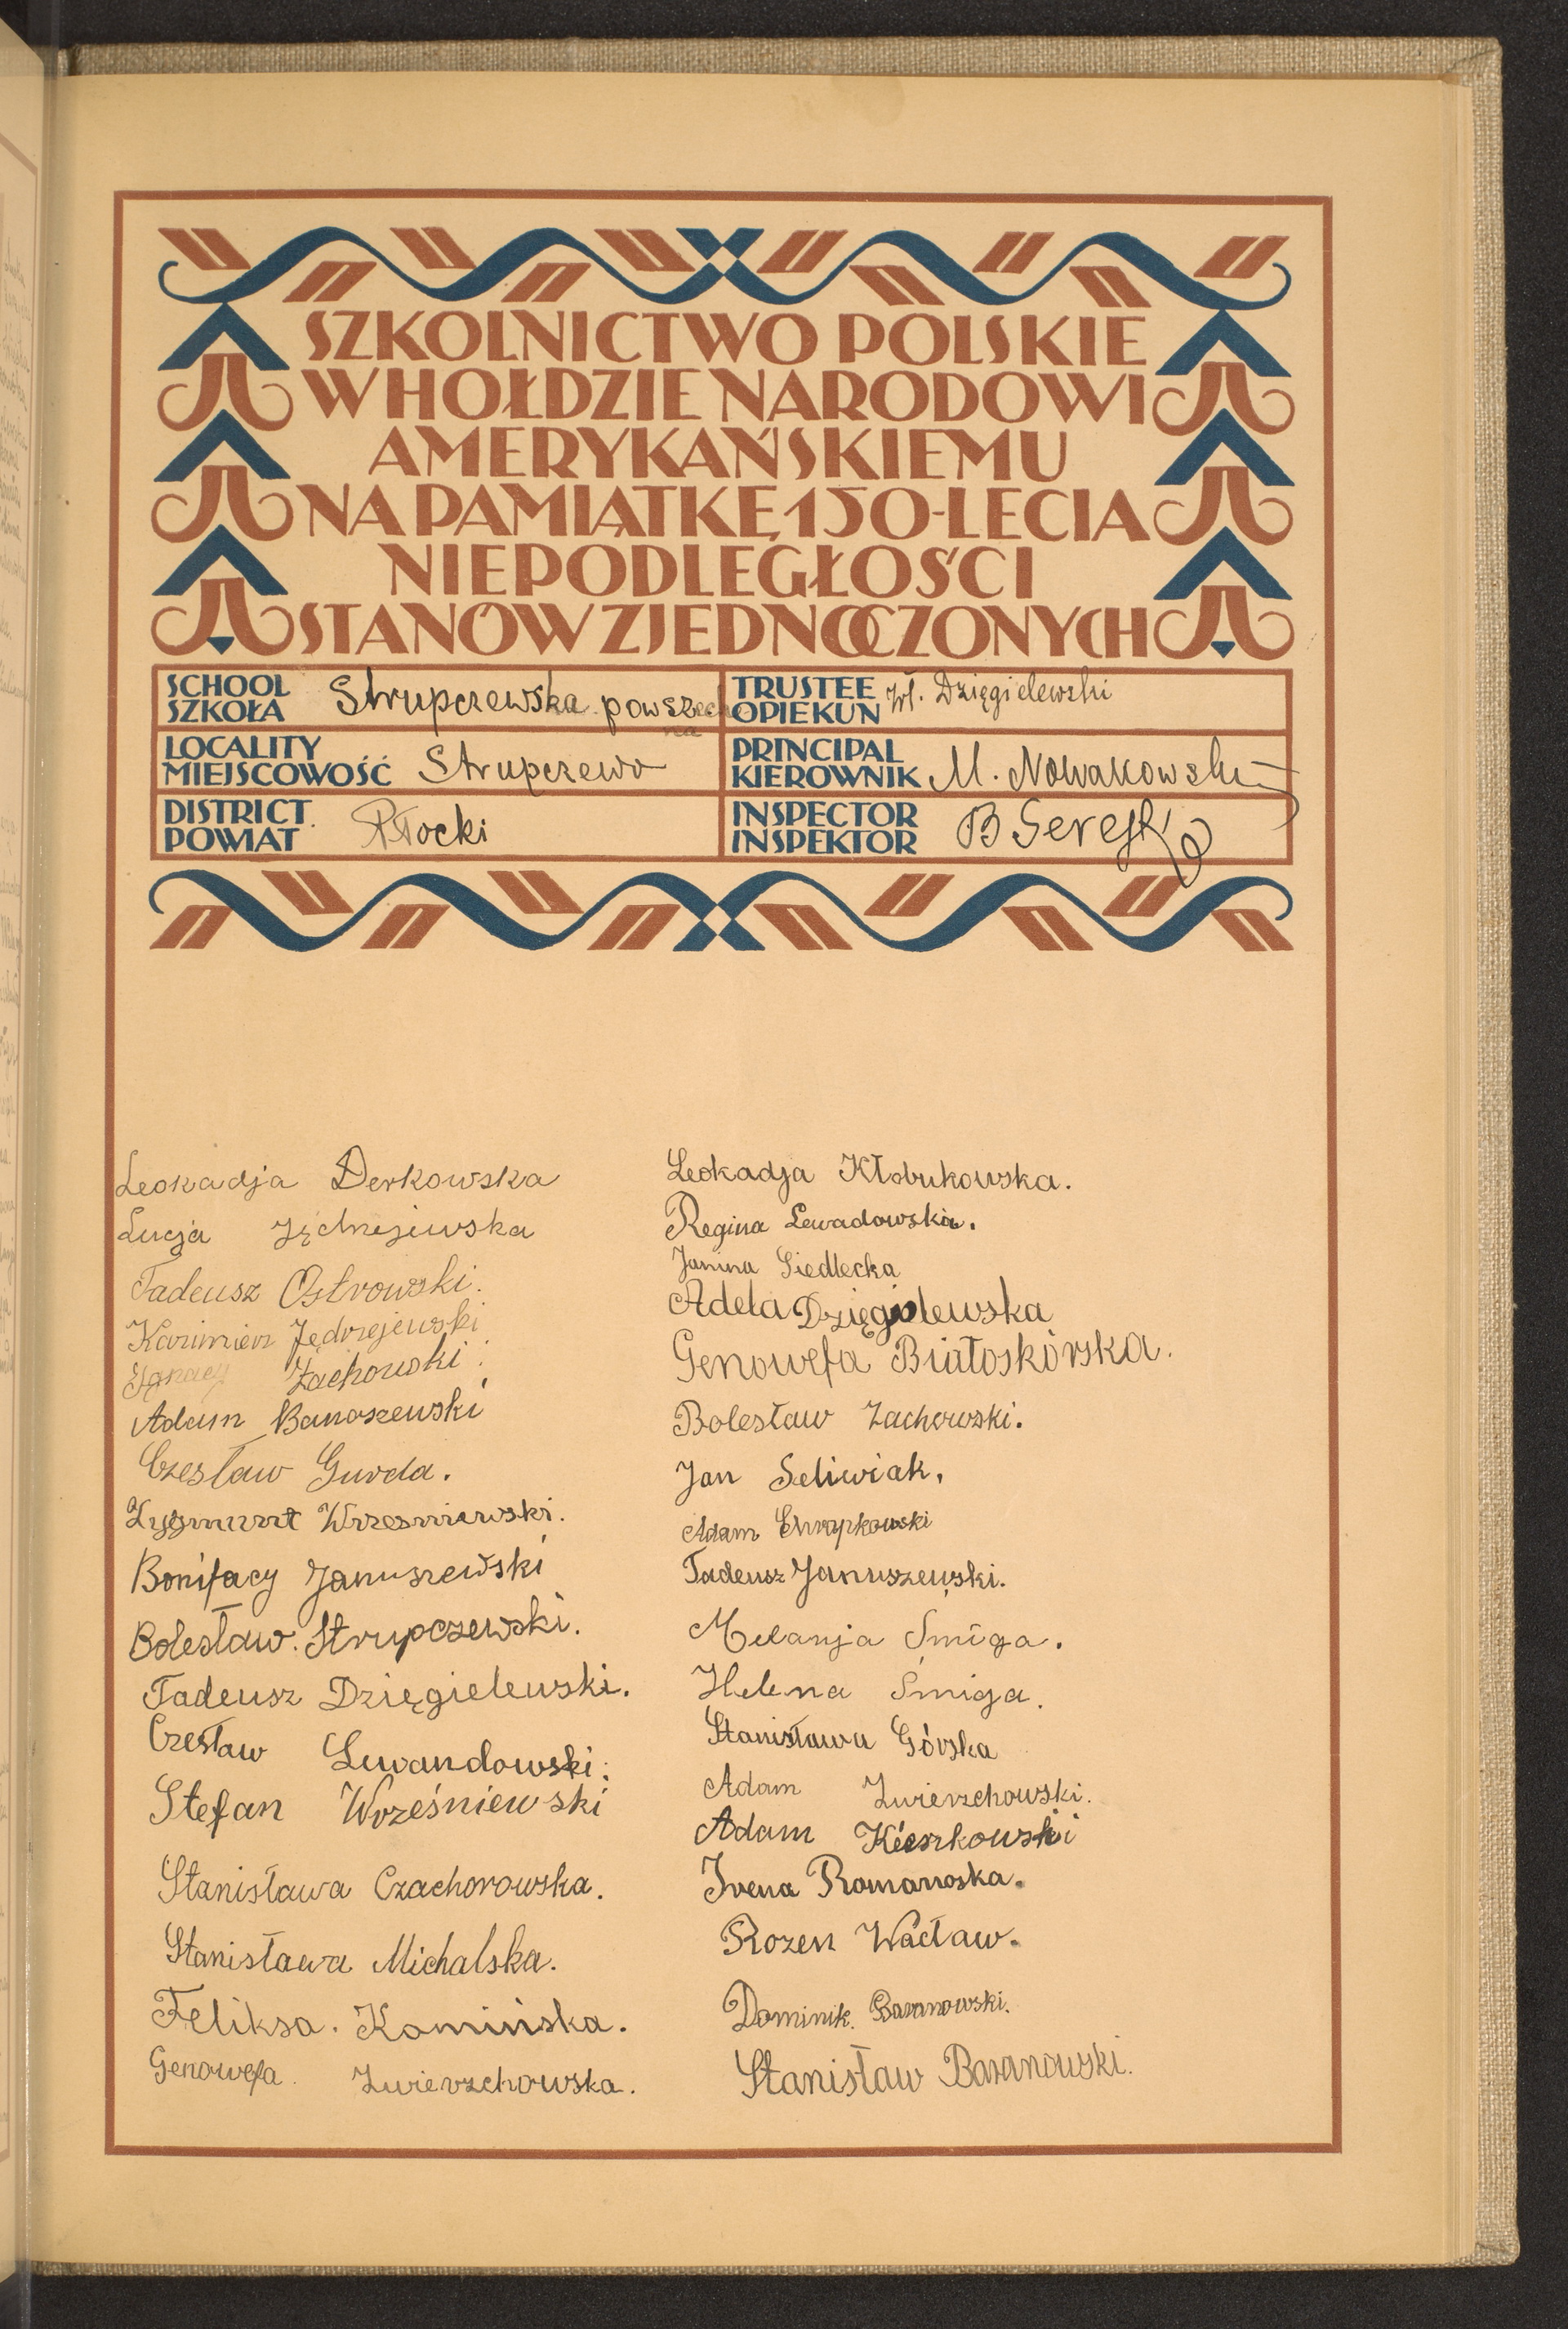 SZKOLNICTWO POLSKIE
W HOŁDZIE NARODOWI
AMERYKAŃSKIEMU
NA PAMIĄTKĘ 150-LECIA
NIEPODLEGŁOŚCI
STANÓW ZJEDNOCZONYCH
SCHOOL
SZKOŁA Strupczewska powszechna
TRUSTEE
OPIEKUN Wł. Dzięgielewski
LOCALITY
MIEJSCOWOŚĆ Strupczewo
PRINCIPAL
KIEROWNIK M. Nowakowski
DISTRICT
POWIAT Płocki
INSPECTOR
INSPEKTOR B Serejko
Leokadja Derkowska
Lucja
Tadeusz Ostrowski.
Kazimierz Jędrzejewski
Ignacy Żachowski.
Adam Banaszewski
Czesław Gurda.
Zygmunt Wrzesniewski.
Bonifacy Januszewski
Bolesław. Strupczewski.
Tadeusz Dzięgielewski.
Czesław Lewandowski.
Stefan Wrześniewski
Stanisława Czachorowska.
Stanisława Michalska.
Feliksa. Kamińska.
Genowefa. Zwierzchowska.
Leokadja Kłobukowska.
Regina Lewadowska.
Janina Siedlecka
Adela Dzięgielewska
Genowefa Białoskórska.
Bolesław Zachowski.
Jan Seliwiak.
Adam
Tadeusz Januszewski.
Melanja Śmiga.
Helena Śmiga.
Stanisława Górska
Adam Zwierzchowski.
Adam Kieszkowski
Irena Romanoska.
Rozen Wacław.
Dominik. Baranowski.
Stanisław Baranowski.